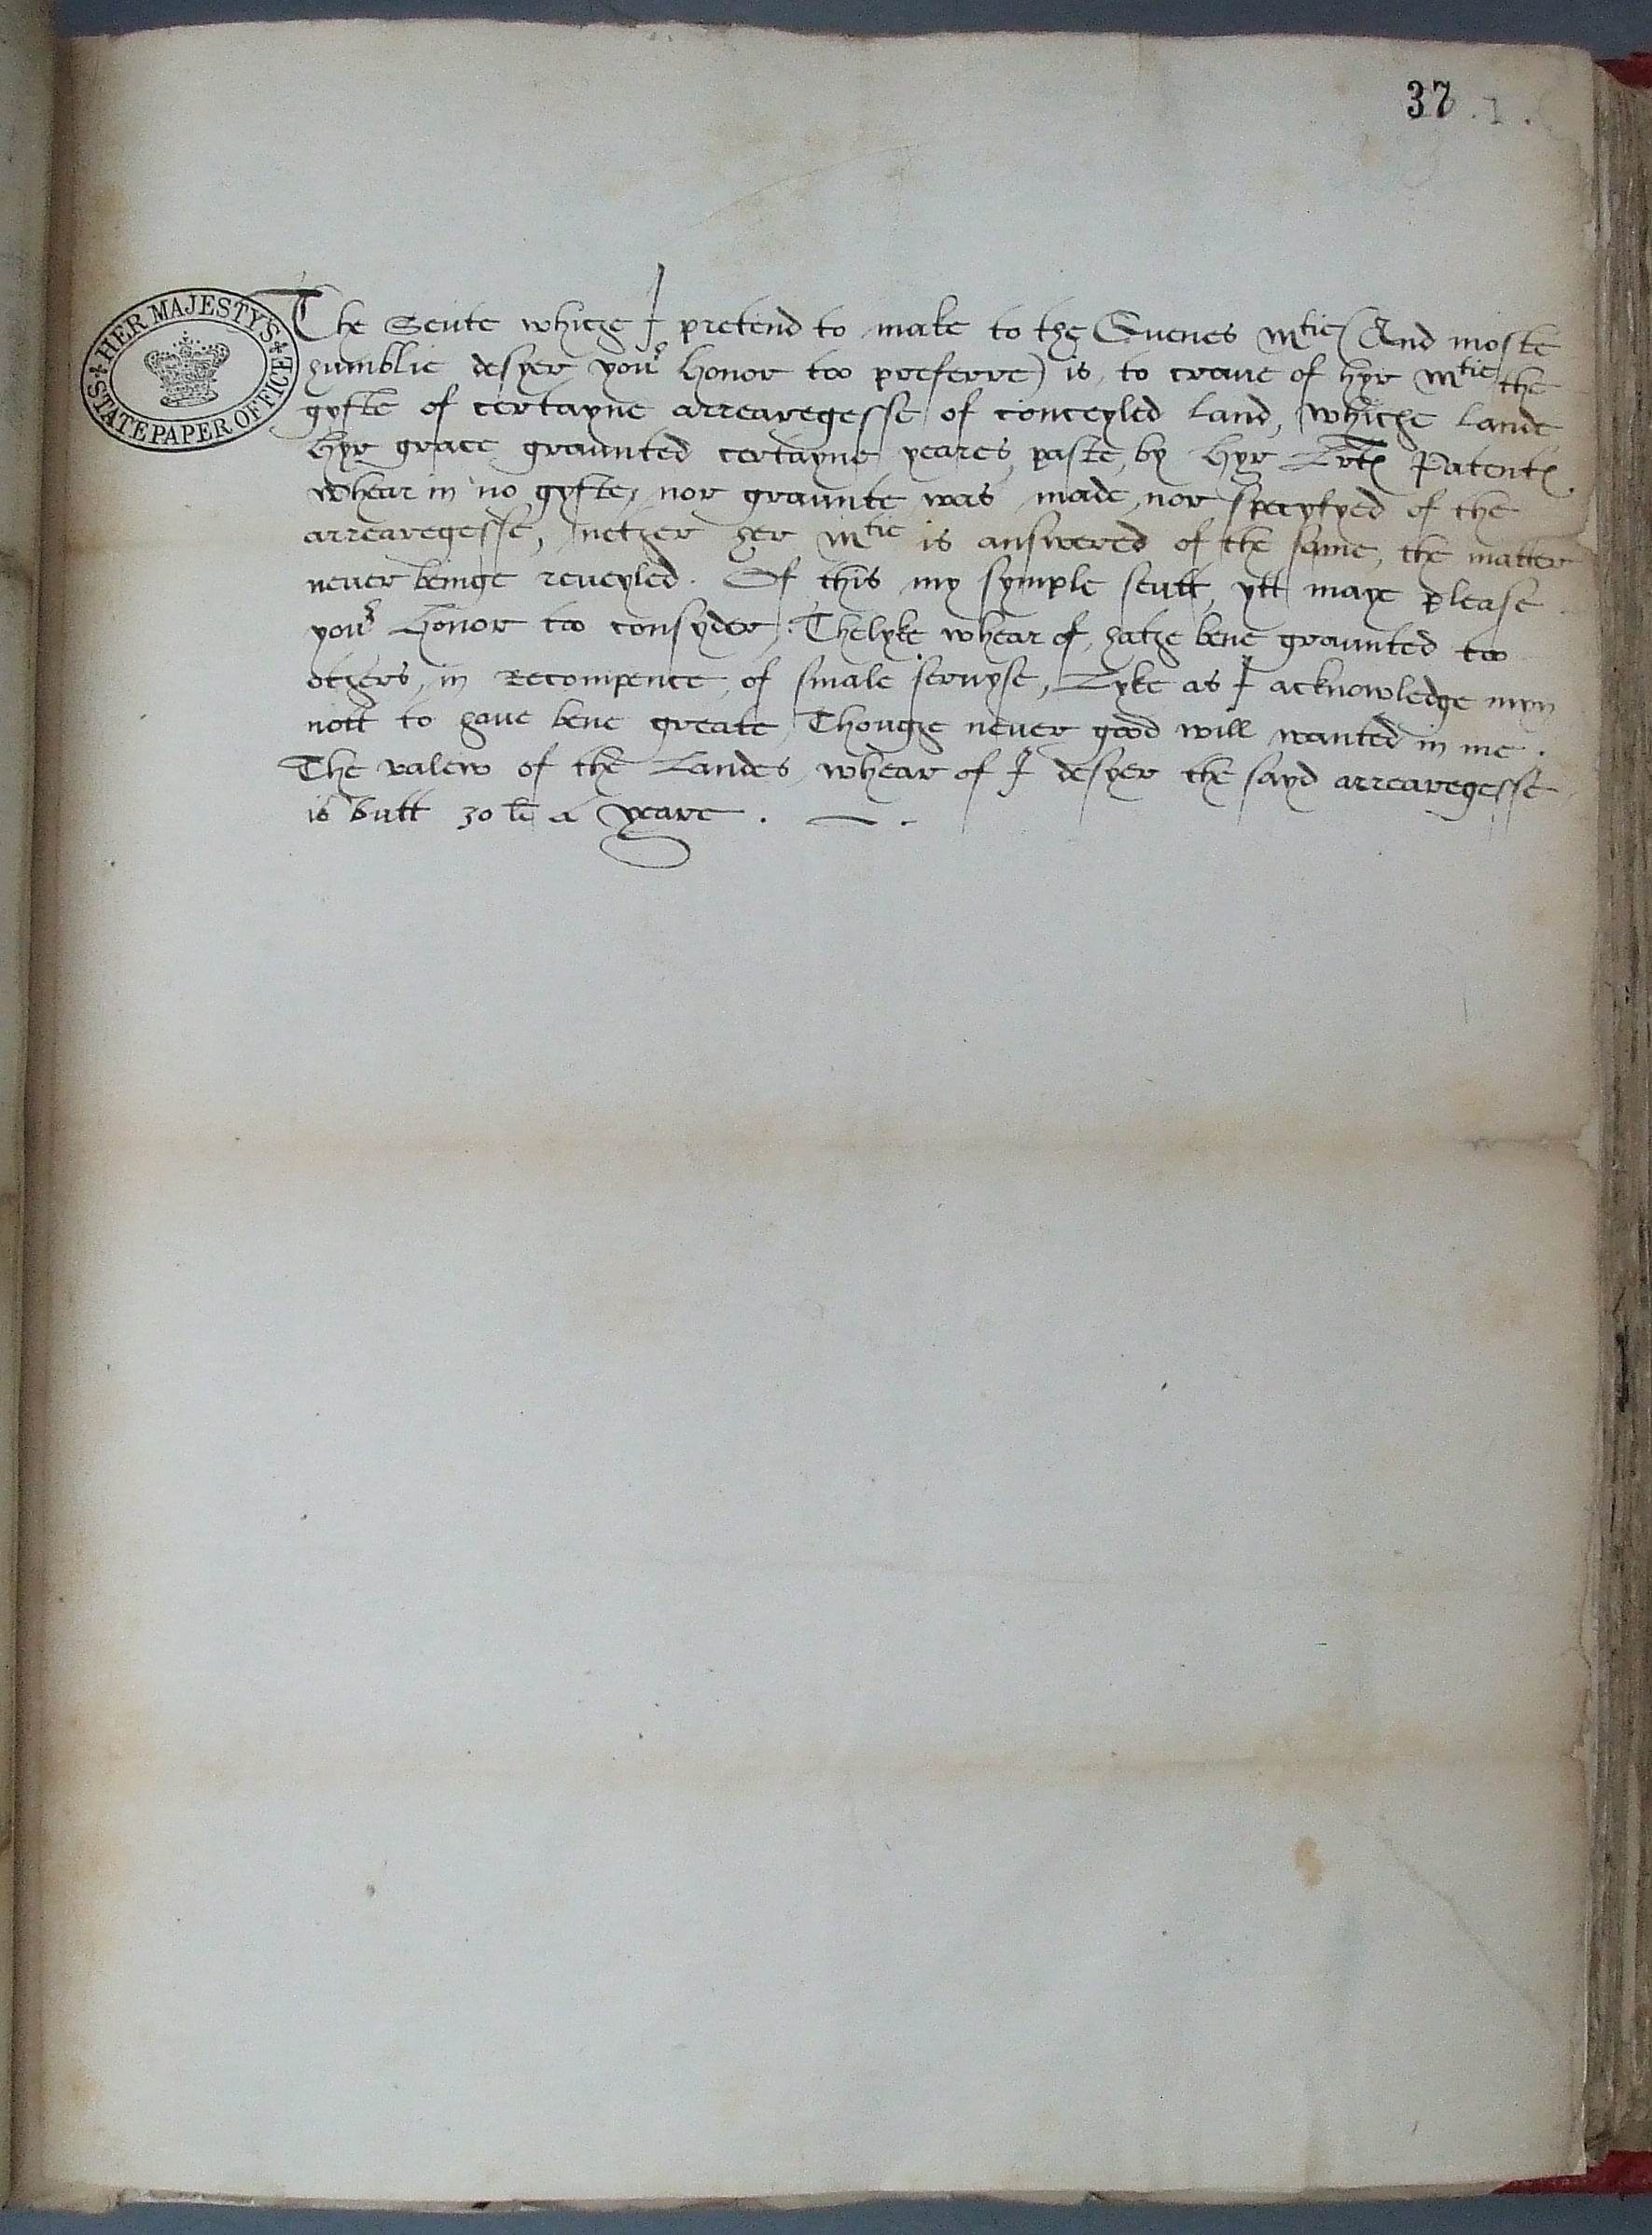 37 . 1 .
HER MAJESTY'S
STATE PAPER OFFICE
The Seute whiche I pretend to make to the Quenes Mtie (And moste
humblie desyer your Honor too preferre) is, to craue of hyr Mtie the
gyfte of certayne arrearegesse of conceyled land, whiche lande
hyr grace graunted certayne yeares paste, by hyr Lrtes Patentes
whear in no gyfte, nor graunte was made, nor specyfyed of the
arrearegesse, nether her Mtie is answered of the same, the matter
never beinge reveyled. Of this my symple seutt, ytt maye please
your Honor too consyder. Thelyke whear of, hathe bene graunted too
others, in Recompence of smale servyse, Lyke as I acknowledge myn
nott to haue bene greate, Thoughe never good will wanted in me.
The valew of the Landes, whear of I desyer the sayd arrearegesse
is butt 30 li a yeare.